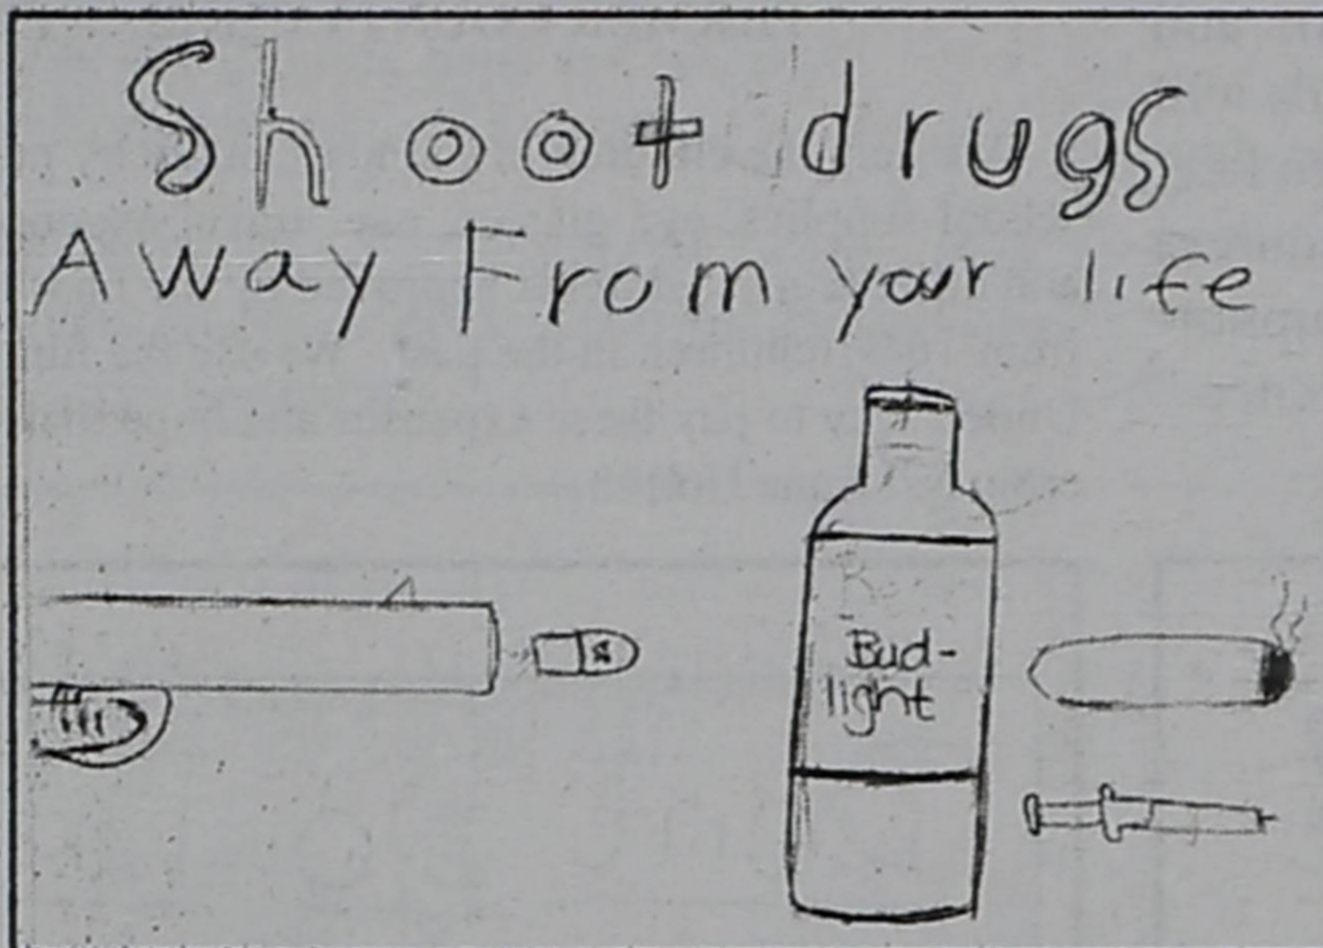 Shoot drugs
Away From your life
Bud-
light